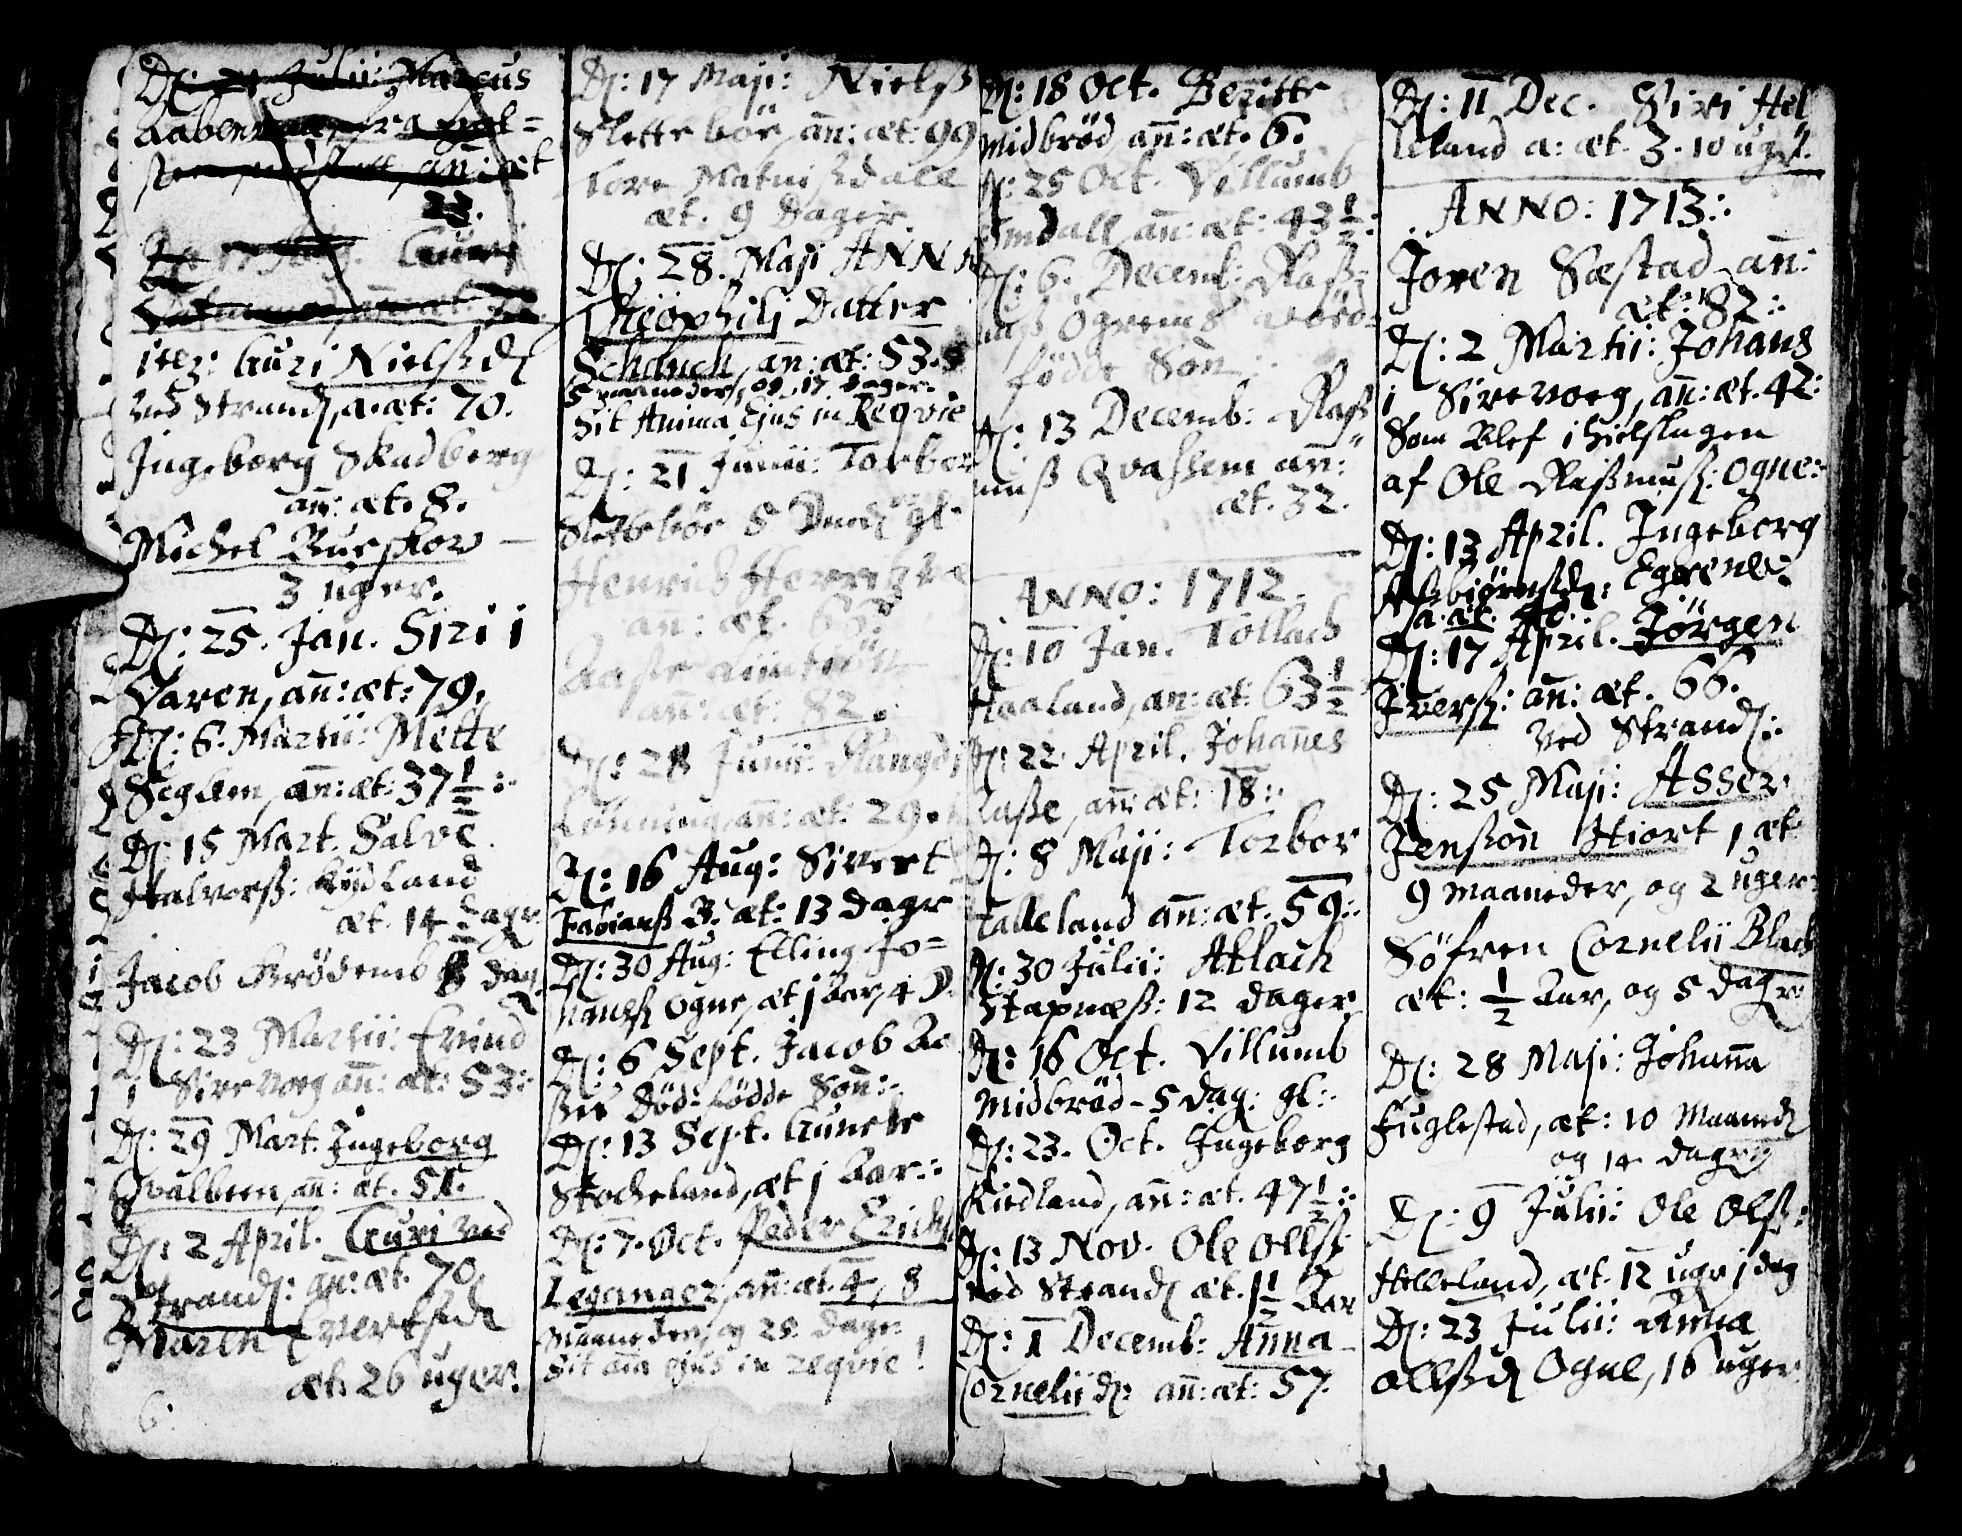 D: 21 Julii: Marcus
Aabenraa, fra Hol=
sten, an: æt
23.
Aug. Guri
an: æt. 70
itez: Guri Nielsd
Ved Strand, a. æt: 70.
Ingeborg Skadberg
an: æt. 8.
Michel Burskov
3 uger.
D: 25. Jan. Siri i
Varen, an: æt: 79.
D: 6. Martii: Mette
Seglem, an: æt: 37 1/2 :
D: 15 Mart. Salve
Halvorß: Kydland
æt. 14 dagr.
Jacob Brödemb 8 dag
D: 23 Martii: Evind
i Sirevoeg an: æt: 53:
D: 29 Mart. Ingeborg
Qvalbeen, an: æt. 51.
D: 2 April. Guri ved
Strand: an: æt. 70.
Maren Evertsd
æt: 26 uger.
6.
D: 17 Maji: Nielß
Slettebör, an: æt: 99
Tore Matnißdall
æt. 9 Dager
D: 28. Maji ANNA
Theophili Datter
Schauch, an: æt: 53.
5 maaneder, og 17 dager.
Sit Anima Ejus in Reqvie
D: 21 Junii: Torbor
Slettebör 8 gl.
Henrich
an: æt. 66
Aaße
an: æt: 82.
D: 28 Junii: Rangdi
an: æt: 29.
D: 16 Aug: Sivert
Fabianß B. æt: 13 dagr
D: 30 Aug: Elling Jo=
hanß Ogne, æt j Aar, 4 D.
D: 6 Sept. Jacob Aa
död: födde Sön:
D: 13 Sept. Gunele
Stocheland, æt j Aar:
D: 7. Oct. Peder Erichß
Leganger, an: æt. 4, 8
Maaneder, og 25 dage:
Sit aia ejus in reqvie!
D: 18 Oct. Beritte
Midbröd an: æt. 6.
D: 25 Oct. Villumb
Omdall an: æt: 43 1/2:
D: 6. Decemb: Raß=
muß Ögrems död=
födde Sön:
D: 13 Decemb: Raß
muß Qvaßem an:
æt. 32.
ANNO: 1712.
D: 10 Jan. Tollach
Haaland, an: æt: 63 1/2
D: 22 April. Johannes
an: æt: 18:
D: 8 Maji: Torbor
Talleland an: æt. 59:
D: 30 Julii: Atlach
Stapnæß: 12 dager
D: 16 Oct. Villumb
Midbröd - 5 dag: gl:
D: 23. Oct. Ingeborg
Kiedland, an: æt. 47 1/2 :
D: 13 Nov. Ole Olß:
ved Strand æt. 1 1/2 Aar
D: 1 Decemb: Anna
Cornelii d: an: æt: 57.
D: 11 Dec. Siri Hel
leland a: æt. 3. 10 ugr.
ANNO: 1713:
Joren Sæstad an:
æt: 82:
D: 2 Martii: Johans
i Sirevoeg, an: æt. 42:
Som Blef ihielslagen
af Ole Raßmuß: Ogne:
D: 13 April. Ingeborg
Aßbiörnsd: Egrene:
a. æt.
D: 17 April. Jörgen
Iverß: an: æt. 66.
Ved Strand:
D: 25 Maji: Asser
Jensön Hiort, æt
9 maaneder, og 2 uger
Söfren Cornelii Black
æt: 1/2 Aar, og 5 dagr:
D: 28 Maji: Johanna
Fuglestad, æt: 10 Maaned
og 14 dagr
D: 9 Julii: Ole Olß:
Helleland, æt. 12 ugr j dag
D: 23 Julii: Anna
Ollßd Ogne, 16 uger